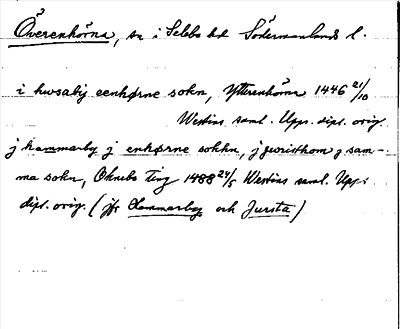 Överenhörna, sn i Selebo hd Södermanlands l.
i husaby eenhørne sokn, Ytterenhörna 1446 21/10
Westins saml. Upps. dipl. orig.
j hammarby j enhørne sokkn, j juristhom j sam-
ma sokn, Øknebo ting 1488 24/5 Westins saml. Upps.
dipl. orig. (jfr Hammarby och Jursta)